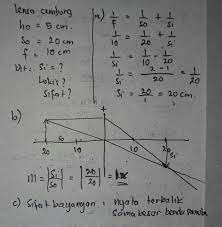 Lensa cembung
ho = 5 cm.
So = 20 cm
f = 10 cm
Dit: Si = ?
Lukis?
Sifat?
a) 1/f = 1/So + 1/Si
1/10 = 1/20 + 1/Si
1/Si = 1/10 - 1/20
1/Si = 2-1/20 = 1/20
Si = 20/1 = 20 cm.
b)
+
So
20 10 10 20
Si
M = |Si/So| = |20/20| = 1
c) Sifat bayangan : nyata terbalik
sama besar benda